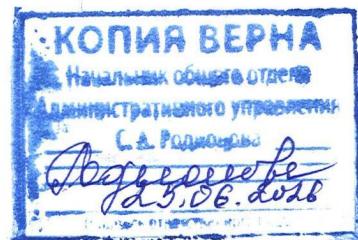 КОПИЯ ВЕРНА
Начальник общего отдела
Административного управления
С. А. Родионова
Родионова
25.06.2026